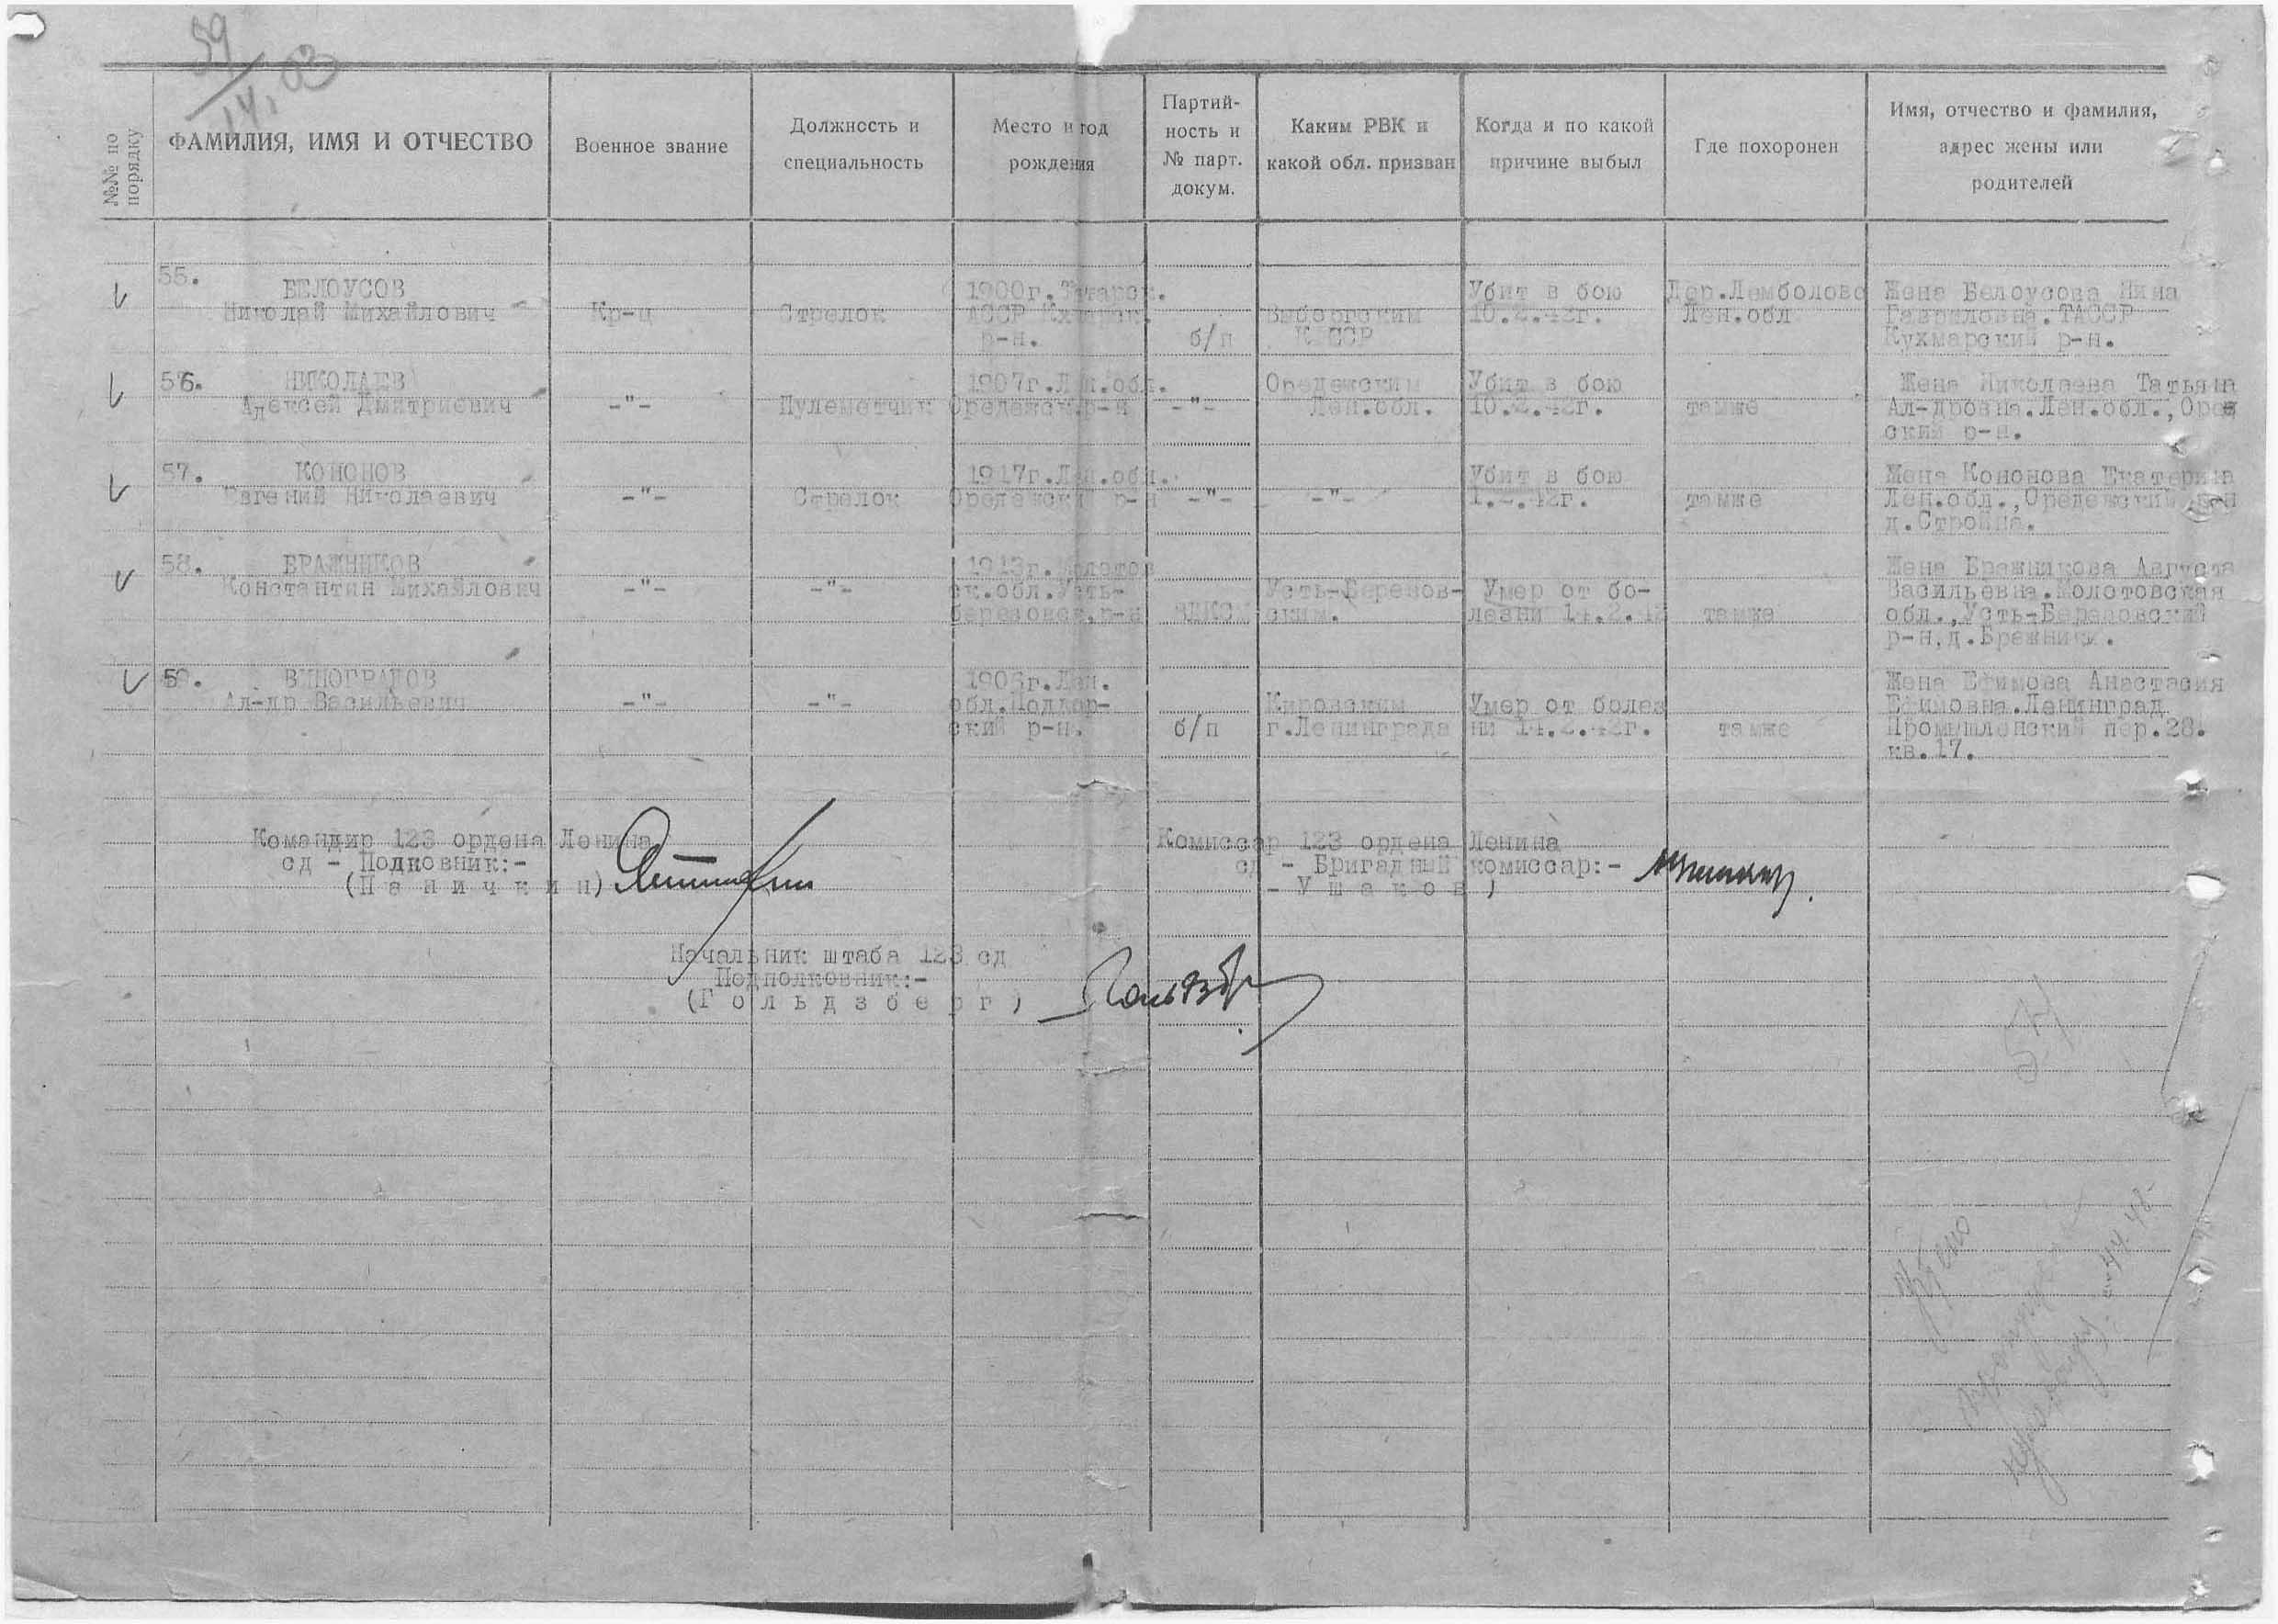 59
14.03
№№ по порядку
ФАМИЛИЯ, ИМЯ И ОТЧЕСТВО
Военное звание
Должность и
специальность
Место и год
рождения
Партий-
ность и
№ парт.
докум.
Каким РВК и
какой обл. призван
Когда и по какой
причине выбыл
Где похоронен
Имя, отчество и фамилия,
адрес жены или
родителей
55.
БЕЛОУСОВ
Николай Михайлович
Кр-ц
Стрелок
1900г. Татарск.
АССР
р-н.
б/п
Выборгским
К ССР
Убит в бою
10.2.42г.
Дер.Лемболово
Лен.обл
Жена Белоусова Нина
Гавриловна.ТАССР
Кухмарский р-н.
56.
НИКОЛАЕВ
Алексей Дмитриевич
-"-
Пулеметчик
1907г.Лен.обл.
Оредежск.р-н
-"-
Оредежским
Лен.обл.
Убит в бою
10.2.42г.
также
Жена Николаева Татьяна
Ал-дровна.Лен.обл.,Оред
ский р-н.
57.
КОНОНОВ
Евгений Николаевич
-"-
Стрелок
1917г.Лен.обл.
Оредежский р-н
-"-
-"-
Убит в бою
42г.
также
Жена Кононова Екатерина
Лен.обл.,Оредежский р-н
д.Стройна.
58.
БРАЖНИКОВ
Константин Михайлович
-"-
-"-
1913г.Молотов
ск.обл.Усть-
березовск.р-н
ВЛКСМ
Усть-Березов-
ским.
Умер от бо-
лезни 14.2.42
также
Жена Бражникова Августа
Васильевна.Молотовская
обл.,Усть-Березовский
р-н,д.Бражники.
59.
ВИНОГРАДОВ
Ал-др Васильевич
-"-
-"-
1906г.Лен.
обл.Поддор-
ский р-н.
б/п
Кировским
г.Ленинграда
Умер от болез
ни 14.2.42г.
также
Жена Ефимова Анастасия
Ефимовна.Ленинград
Промышленский пер.28.
кв.17.
Командир 123 ордена Ленина
сд - Полковник:-
(П а н и ч к и н)
Комиссар 123 ордена Ленина
сд - Бригадный комиссар:-
- У ш а к о в )
Начальник штаба 123 сд
Подполковник:-
(Г о л ь д з б е р г )